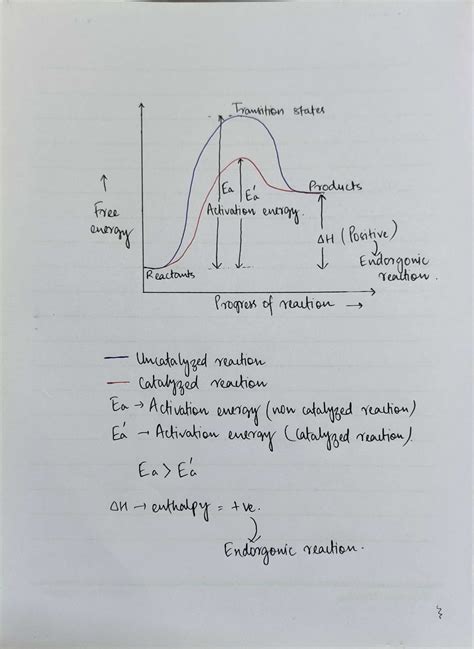 Transition states
Products
Ea
E'a
Activation energy
↑
Free
energy
ΔH (Positive)
Endorgonic
reaction.
Reactants
Progress of reaction →
— Uncatalyzed reaction
— Catalyzed reaction
Ea → Activation energy (non catalyzed reaction)
E'a → Activation energy (catalyzed reaction).
Ea > E'a
ΔH → enthalpy = +ve.
Endorgonic reaction.